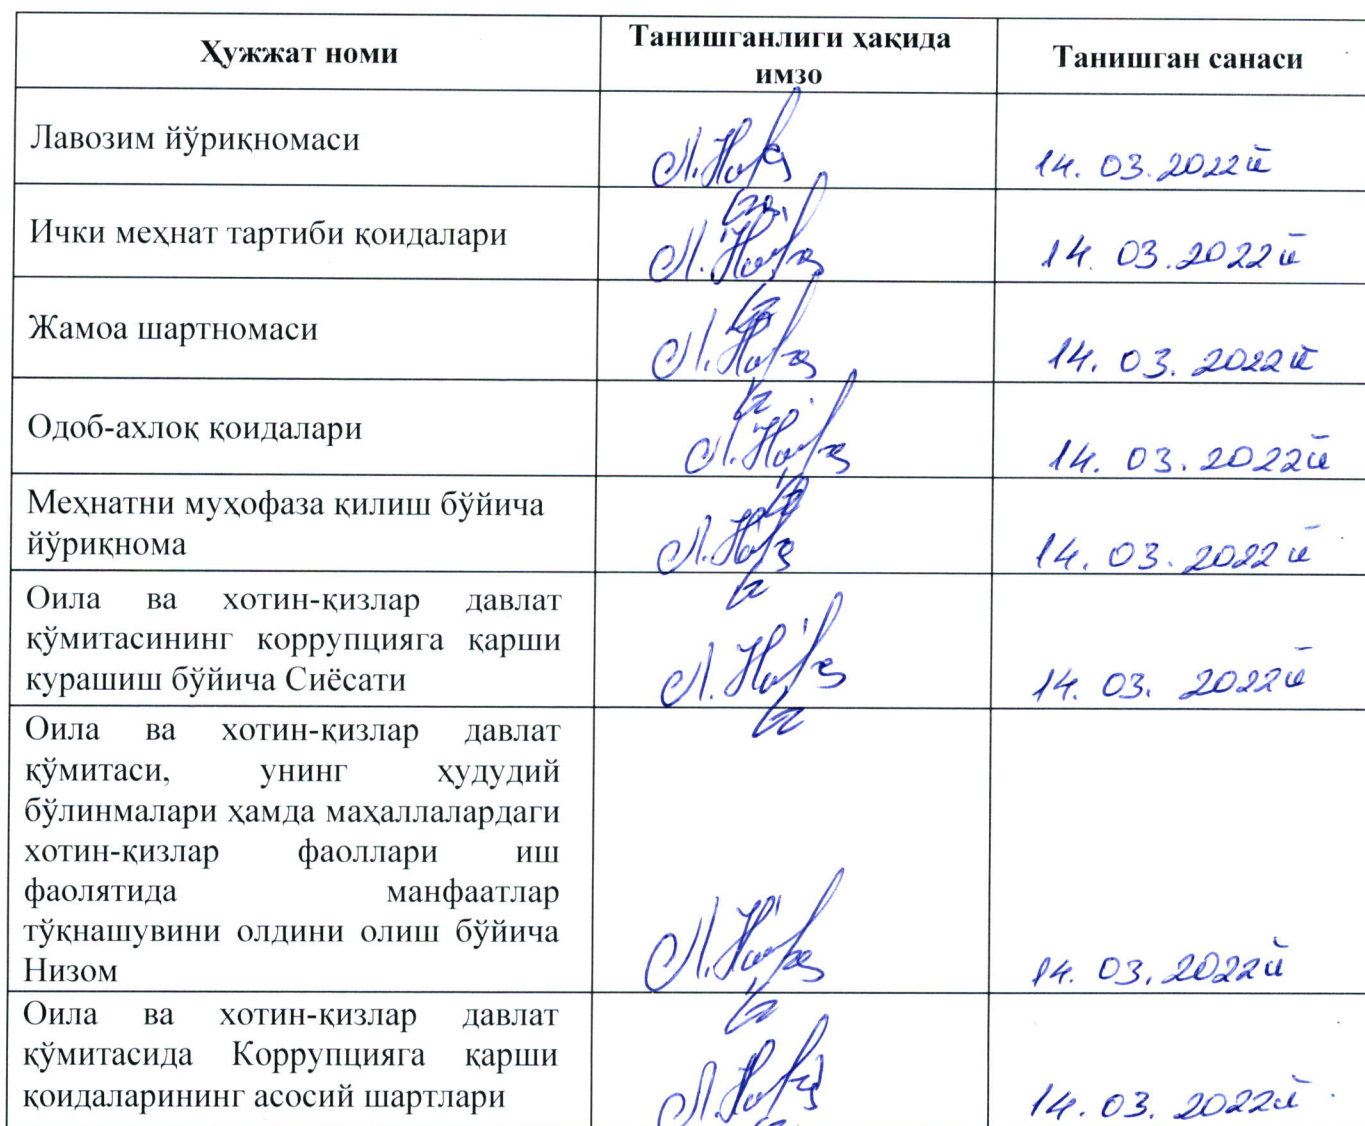 Ҳужжат номи
Танишганлиги ҳақида
имзо
Танишган санаси
Лавозим йўриқномаси
14. 03. 2022й
Ички меҳнат тартиби қоидалари
14. 03. 2022й
Жамоа шартномаси
14. 03. 2022й
Одоб-ахлоқ қоидалари
14. 03. 2022й
Меҳнатни муҳофаза қилиш бўйича
йўриқнома
14. 03. 2022й
Оила ва хотин-қизлар давлат
қўмитасининг коррупцияга қарши
курашиш бўйича Сиёсати
14. 03. 2022й
Оила ва хотин-қизлар давлат
қўмитаси, унинг ҳудудий
бўлинмалари ҳамда маҳаллалардаги
хотин-қизлар фаоллари иш
фаолятида манфаатлар
тўқнашувини олдини олиш бўйича
Низом
14. 03. 2022й
Оила ва хотин-қизлар давлат
қўмитасида Коррупцияга қарши
қоидаларининг асосий шартлари
14. 03. 2022й